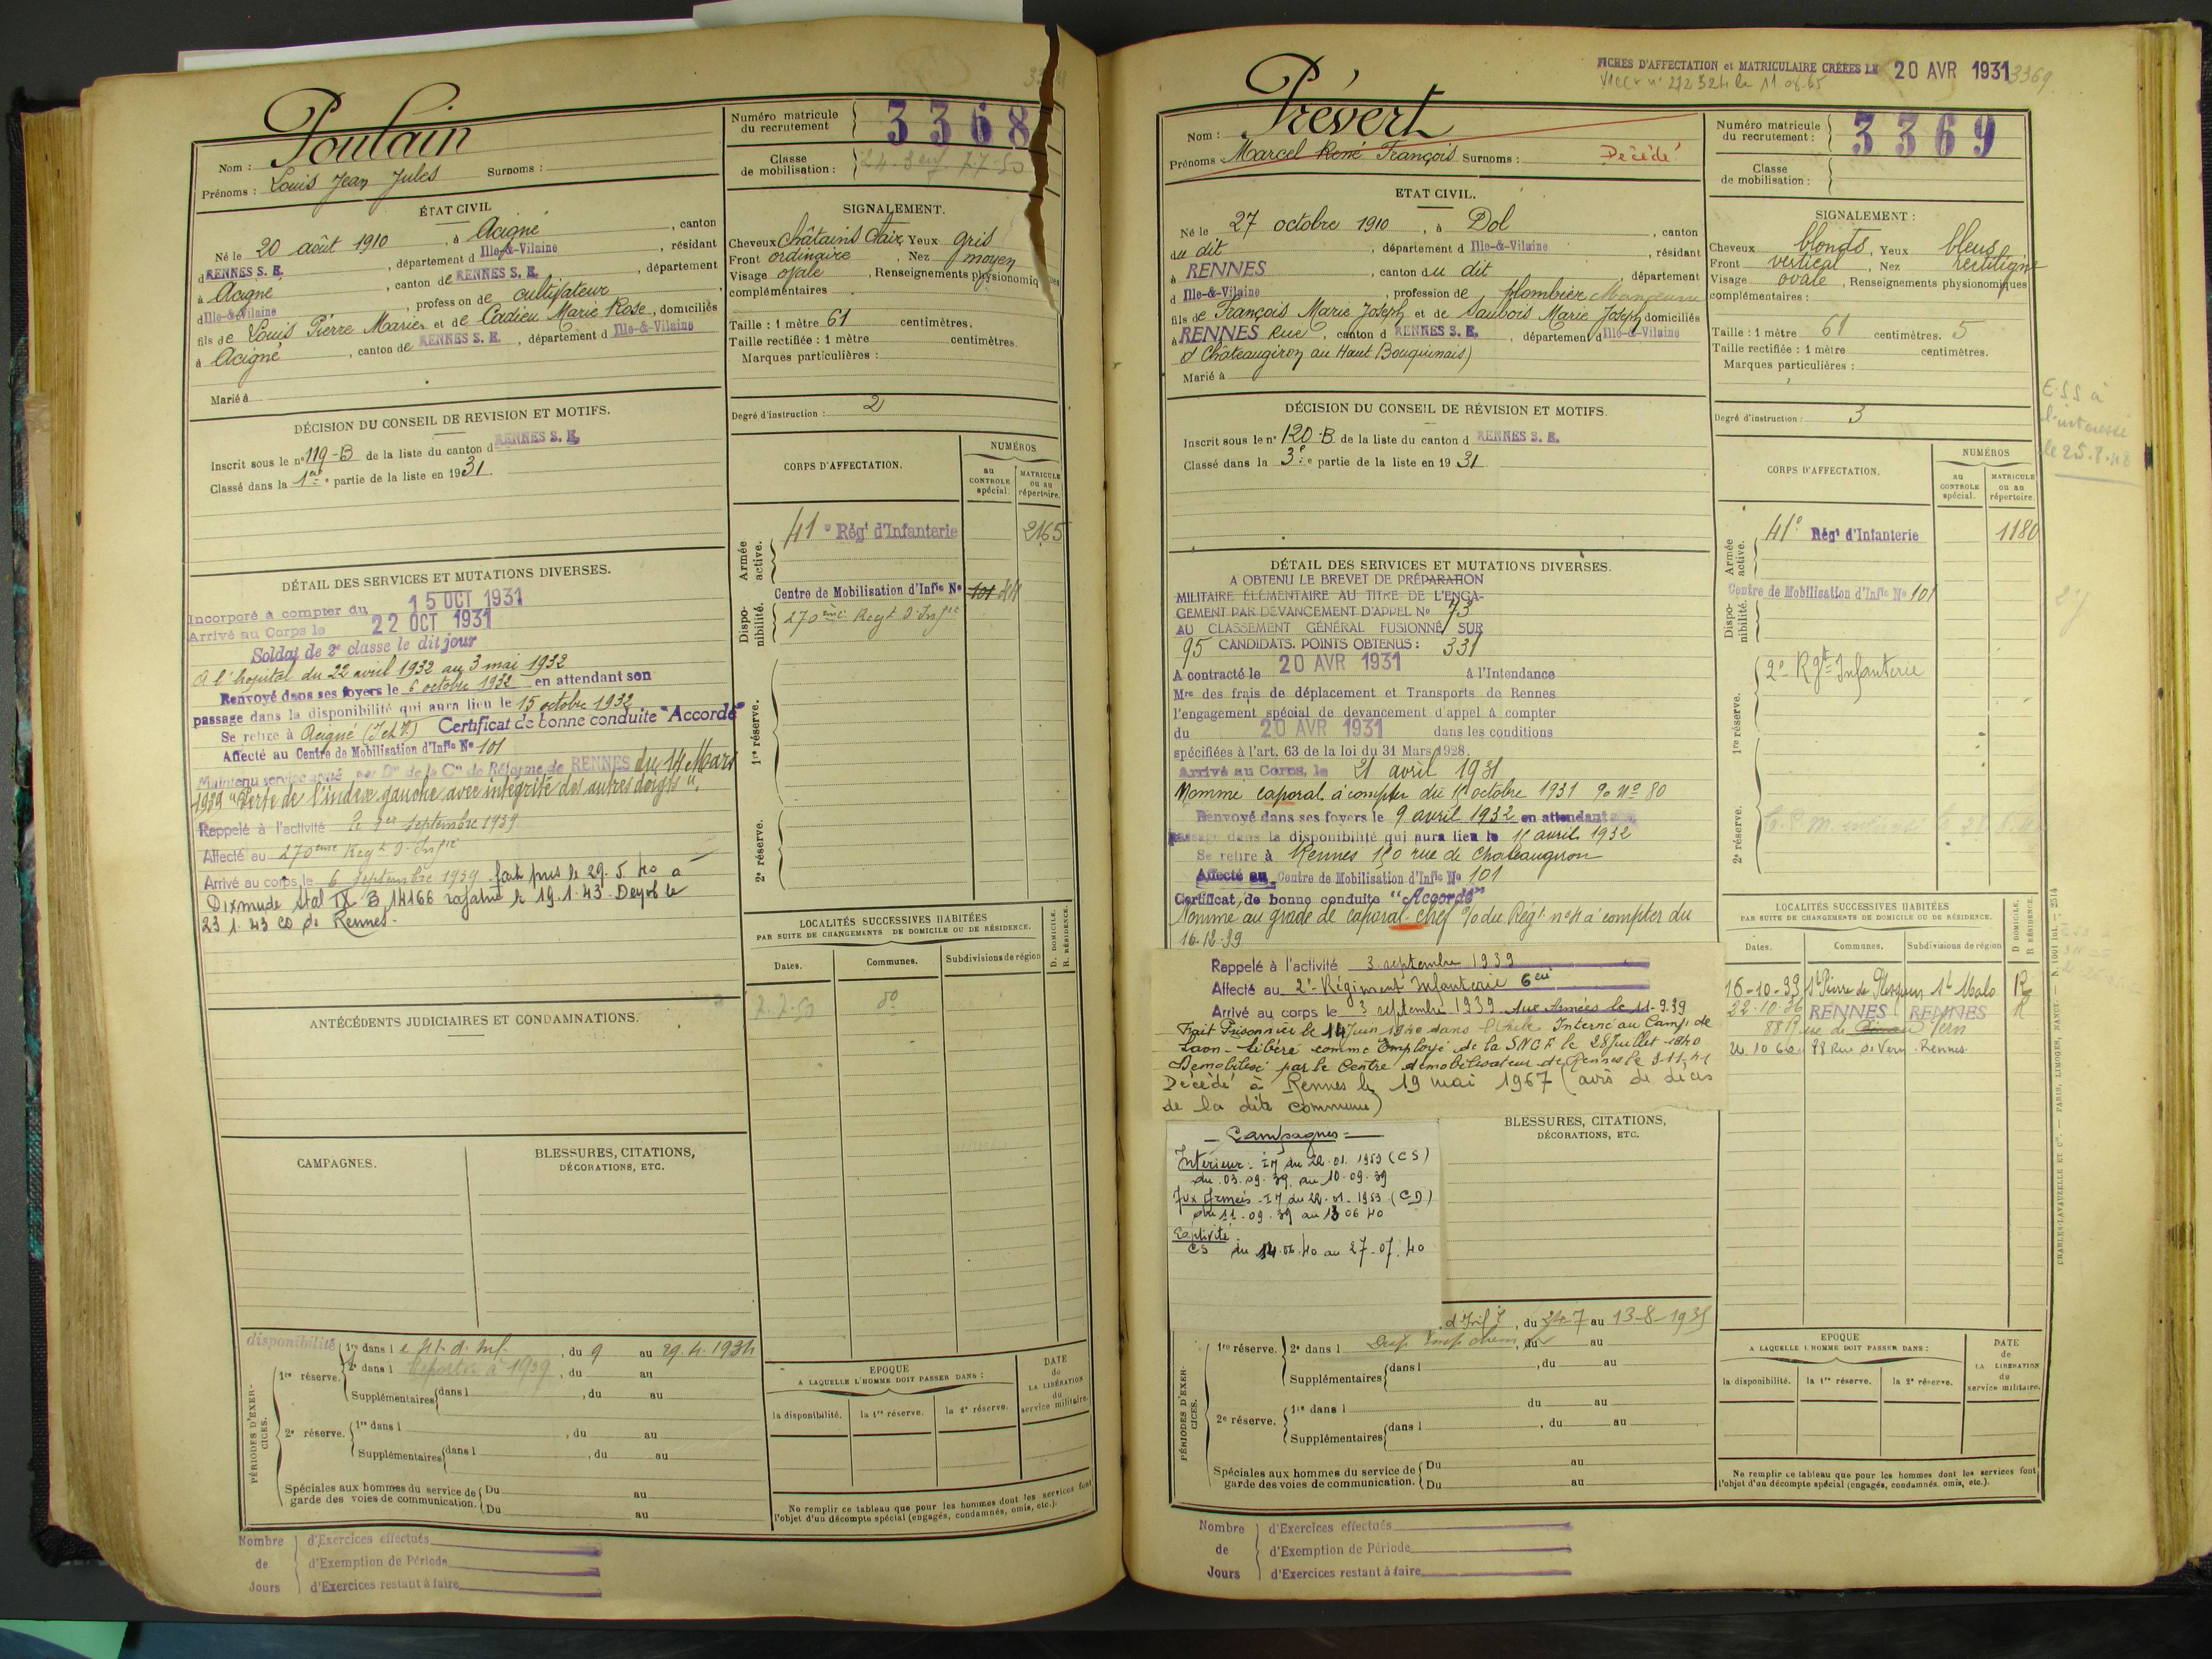 Poulain
Nom :
Prénoms : Louis Jean Jules Surnoms :
Numéro matricule
du recrutement
3368
Classe
de mobilisation :
ÉTAT CIVIL
Né le 20 août 1910, à Acigné, canton
d RENNES S. E., département d Ille-&-Vilaine, résidant
à Acigné, canton de RENNES S. E., département
d Ille-&-Vilaine, profession de cultivateur
fils de Louis Pierre Marie et de Cadieu Marie Rose, domiciliés
à Acigné, canton de RENNES S. E., département d Ille-&-Vilaine
Marié à
SIGNALEMENT.
Cheveux Châtains Clair Yeux gris
Front ordinaire, Nez moyen
Visage ovale, Renseignements physionomiques
complémentaires
Taille : 1 mètre 61 centimètres.
Taille rectifiée : 1 mètre centimètres.
Marques particulières :
Degré d'instruction : 2
DÉCISION DU CONSEIL DE REVISION ET MOTIFS.
Inscrit sous le n° 119-B de la liste du canton d RENNES S. E.
Classé dans la 1re partie de la liste en 1931
CORPS D'AFFECTATION.
NUMÉROS
au
CONTROLE
spécial.
MATRICULE
ou au
répertoire.
Armée
active.
41e Régt d'Infanterie 2165
Dispo-
nibilité.
Centre de Mobilisation d'Inf'ie N° 101
270ème Regt d'Infie
1re réserve.
2e réserve.
DÉTAIL DES SERVICES ET MUTATIONS DIVERSES.
Incorporé à compter du 15 OCT 1931
Arrivé au Corps le 22 OCT 1931
Soldat de 2e classe le dit jour
A l'hopital du 22 avril 1932 au 3 mai 1932
Renvoyé dans ses foyers le 6 octobre 1932 en attendant son
passage dans la disponibilité qui aura lieu le 15 octobre 1932
Se retire à Acigné (I et V) Certificat de bonne conduite "Accordé"
Affecté au Centre de Mobilisation d'Infie N° 101
Maintenu service armé par Don de la Con de Réforme de RENNES du 14 Mars
1939 "Perte de l'index gauche avec intégrité des autres doigts".
Rappelé à l'activité le 1er septembre 1939
Affecté au 270ème Regt d'Infie
Arrivé au corps le 6 septembre 1939 fait pris le 29.5.40 à
Dixmude Stal IX B 14166 rapatrié le 19.1.43. Demob le
23.1.43 CD de Rennes.
ANTÉCÉDENTS JUDICIAIRES ET CONDAMNATIONS.
CAMPAGNES.
BLESSURES, CITATIONS,
DÉCORATIONS, ETC.
LOCALITÉS SUCCESSIVES HABITÉES
PAR SUITE DE CHANGEMENTS DE DOMICILE OU DE RÉSIDENCE.
Dates. Communes. Subdivisions de région
D. DOMICILE.
R. RÉSIDENCE.
PÉRIODES D'EXER-
CICES.
disponibilité
1re réserve.
1re dans l, du 9 au 29.4.1934
2e dans l Reportée à 1939, du au
Supplémentaires dans l, du au
2e réserve.
1re dans l, du au
Supplémentaires dans l, du au
Spéciales aux hommes du service de
garde des voies de communication.
Du au
Du au
EPOQUE
A LAQUELLE L'HOMME DOIT PASSER DANS :
la disponibilité. la 1re réserve. la 2e réserve.
DATE
de
LA LIBÉRATION
du
service militaire.
Ne remplir ce tableau que pour les hommes dont les services font
l'objet d'un décompte spécial (engagés, condamnés, omis, etc.).
Nombre
de
Jours
d'Exercices effectués
d'Exemption de Période
d'Exercices restant à faire
FICHES D'AFFECTATION et MATRICULAIRE CRÉÉES LE 20 AVR 1931
3369
Prévert
Nom :
Prénoms Marcel René François Surnoms : Décédé
Numéro matricule
du recrutement :
3369
Classe
de mobilisation :
ETAT CIVIL.
Né le 27 octobre 1910, à Dol, canton
du dit, département d Ille-&-Vilaine, résidant
à RENNES, canton du dit, département
d Ille-&-Vilaine, profession de plombier
fils de François Marie Joseph et de Saubois Marie Joseph domiciliés
à RENNES Rue, canton d RENNES S. E., département d Ille-&-Vilaine
d Châteaugiron au Haut Bouquinais)
Marié à
SIGNALEMENT :
Cheveux blonds, Yeux bleus
Front vertical, Nez rectiligne
Visage ovale, Renseignements physionomiques
complémentaires :
Taille : 1 mètre 61 centimètres. 5
Taille rectifiée : 1 mètre centimètres.
Marques particulières :
Degré d'instruction : 3
E.S.S à
l'interessé
le 25.8.48
DÉCISION DU CONSEIL DE RÉVISION ET MOTIFS.
Inscrit sous le n° 120-B de la liste du canton d RENNES S. E.
Classé dans la 3e partie de la liste en 1931
CORPS D'AFFECTATION.
NUMÉROS
au
CONTROLE
spécial.
MATRICULE
ou au
répertoire.
Armée
active.
41e Régt d'Infanterie 1180
Dispo-
nibilité.
Centre de Mobilisation d'Infie N° 101
1re réserve.
2e Rgt Infanterie
2e réserve.
DÉTAIL DES SERVICES ET MUTATIONS DIVERSES.
A OBTENU LE BREVET DE PRÉPARATION
MILITAIRE ÉLÉMENTAIRE AU TITRE DE L'ENGA-
GEMENT PAR DEVANCEMENT D'APPEL N° 73
AU CLASSEMENT GÉNÉRAL FUSIONNÉ SUR
95 CANDIDATS. POINTS OBTENUS : 331
A contracté le 20 AVR 1931 à l'Intendance
Mre des frais de déplacement et Transports de Rennes
l'engagement spécial de devancement d'appel à compter
du 20 AVR 1931 dans les conditions
spécifiées à l'art. 63 de la loi du 31 Mars 1928.
Arrivé au Corps, le 21 avril 1931
Nommé caporal à compter du 15 octobre 1931 No 80
Renvoyé dans ses foyers le 9 avril 1932 en attendant son
passage dans la disponibilité qui aura lieu le avril 1932
Se retire à Rennes 150 rue de Chateaugiron
Affecté au Centre de Mobilisation d'Infie N° 101
Certificat de bonne conduite "Accordé"
Nommé au grade de caporal-chef du Régt à compter du
16-12-39
Rappelé à l'activité 3 septembre 1939
Affecté au 2e Régiment Infanterie 6eme
Arrivé au corps le 3 septembre 1939 Aux Armées le 11-9.39
Fait Prisonnier le 14 Juin 1940 dans Interné au Camp de
Laon - Libéré comme Employé de la SNCF le 28 Juillet 1940
Démobilisé par le Centre démobilisateur de Rennes le
Décédé à Rennes le 19 mai 1967 (avis de décès
de la dite commune)
Campagnes
Intérieur - IM du 22.01.1953 (CS)
du 03.09.39 au 10.09.39
Aux Armées - IM du 22-01-1953 (CD)
du 11.09.39 au 13 06 40
Captivité
CS du 14.06.40 au 27.07.40
BLESSURES, CITATIONS,
DÉCORATIONS, ETC.
LOCALITÉS SUCCESSIVES HABITÉES
PAR SUITE DE CHANGEMENTS DE DOMICILE OU DE RÉSIDENCE.
Dates. Communes. Subdivisions de région
D DOMICILE.
R RÉSIDENCE.
16-10-33 St Pierre de Plesguen St Malo R
22.10.36 RENNES RENNES R
88 Rue de Vern
88 Rue de Vern Rennes
CHARLES-LAVAUZELLE ET Cie. — PARIS, LIMOGES, NANCY.
PÉRIODES D'EXER-
CICES.
du 24-7 au 13-8-1935
1re réserve.
2e dans l, du au
Supplémentaires dans l, du au
2e réserve.
1re dans l du au
Supplémentaires dans l, du au
Spéciales aux hommes du service de
garde des voies de communication.
Du au
Du au
EPOQUE
A LAQUELLE L'HOMME DOIT PASSER DANS :
la disponibilité. la 1re réserve. la 2e réserve.
DATE
de
LA LIBERATION
du
service militaire.
Ne remplir ce tableau que pour les hommes dont les services font
l'objet d'un décompte spécial (engagés, condamnés, omis, etc.).
Nombre
de
Jours
d'Exercices effectués
d'Exemption de Période
d'Exercices restant à faire